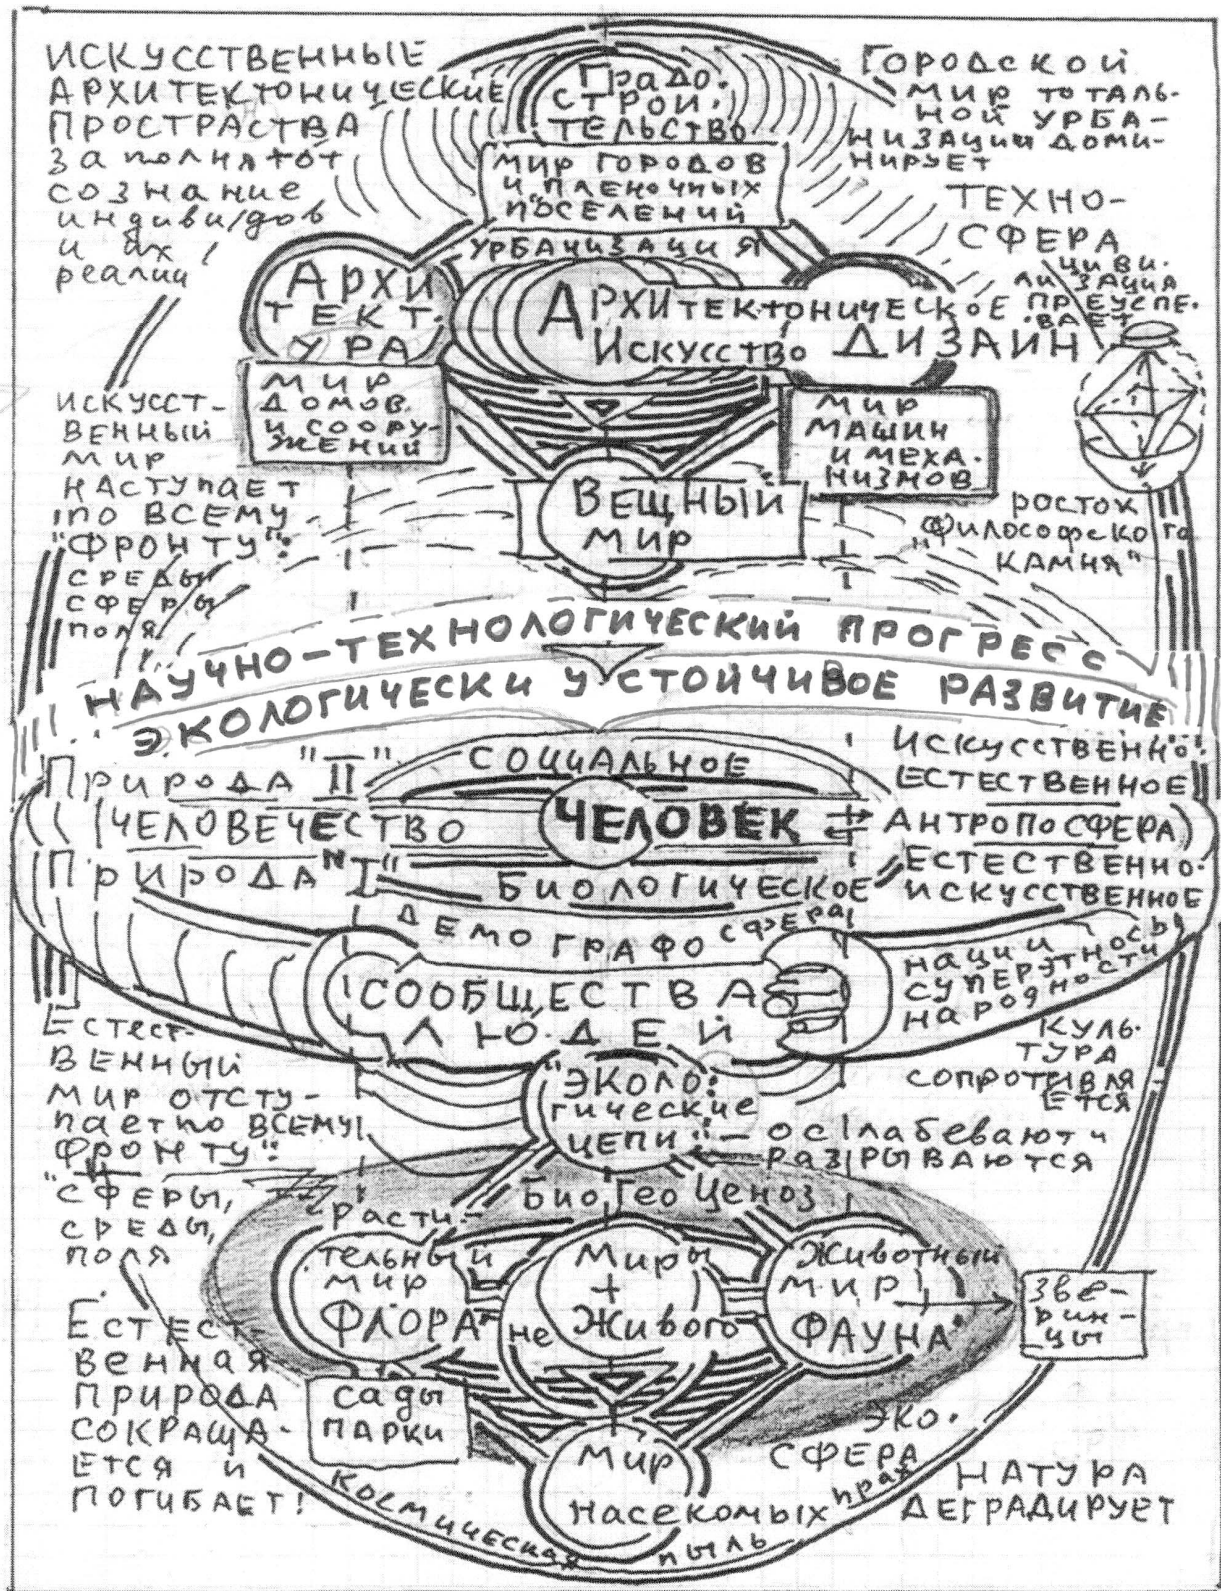 ИСКУССТВЕННЫЕ
АРХИТЕКТОНИЧЕСКИЕ
ПРОСТРАСТВА
заполняют
сознание
индиви/дов
и их
реалии
Градо.
СТРОИ.
ТЕЛЬСТВО
МИР ГОРОДОВ
И "ПЛЕНОЧНЫХ
ПОСЕЛЕНИЙ
УРБАНИЗАЦИЯ
ГОРОДСКОЙ
МИР ТОТАЛЬ-
НОЙ УРБА-
НИЗАЦИИ ДОМИ-
НИРУЕТ
ТЕХНО-
СФЕРА
ЦИВИ.
ЛИЗАЦИЯ
ПРЕУСПЕ.
ВАЕТ
АРХИ
ТЕКТ.
УРА
АРХИТЕКТОНИЧЕСКОЕ
ИСКУССТВО
ДИЗАЙН
МИР
ДОМОВ
И СООРУ-
ЖЕНИЙ
МИР
МАШИН
И МЕХА-
НИЗМОВ
ВЕЩНЫЙ
МИР
ИСКУССТ-
ВЕННЫЙ
МИР
НАСТУПАЕТ
ПО ВСЕМУ
"ФРОНТУ":
СРЕДЫ
СФЕРЫ
ПОЛЯ
РОСТОК
"Философского
КАМНЯ"
НАУЧНО-ТЕХНОЛОГИЧЕСКИЙ ПРОГРЕСС
ЭКОЛОГИЧЕСКИ УСТОЙЧИВОЕ РАЗВИТИЕ
Природа "II"
СОЦИАЛЬНОЕ
ИСКУССТВЕННО
ЕСТЕСТВЕННОЕ
ЧЕЛОВЕЧЕСТВО
ЧЕЛОВЕК
АНТРОПОСФЕРА
Природа "I"
БИОЛОГИЧЕСКОЕ
ЕСТЕСТВЕННО-
ИСКУССТВЕННОЕ
ДЕМОГРАФОСФЕРА
СООБЩЕСТВА
ЛЮДЕЙ
НАЦИИ
СУПЕРЭТНОСЫ
НАРОДНОСТИ
КУЛЬ-
ТУРА
СОПРОТИВЛЯ
ЕТСЯ
ЕСТЕСТ-
ВЕННЫЙ
МИР ОТСТУ-
ПАЕТ ПО ВСЕМУ
ФРОНТУ":
"СФЕРЫ,
СРЕДЫ,
ПОЛЯ
"ЭКОЛО-
гические
ЦЕПИ" – ослабевают и
РАЗРЫВАЮТСЯ
БиоГеоЦеноз
Расти-
тельный
мир
ФЛОРА"
Миры
+
не Живого
Животный
МИР
ФАУНА"
Зве-
рин-
цы
сады
ПАРКИ
Мир
насекомых
ЭКО-
СФЕРА
ЕСТЕСТ-
венная
ПРИРОДА
СОКРАЩА-
ЕТСЯ И
ПОГИБАЕТ!
КОСМИЧЕСКАЯ пыль прах
НАТУРА
ДЕГРАДИРУЕТ